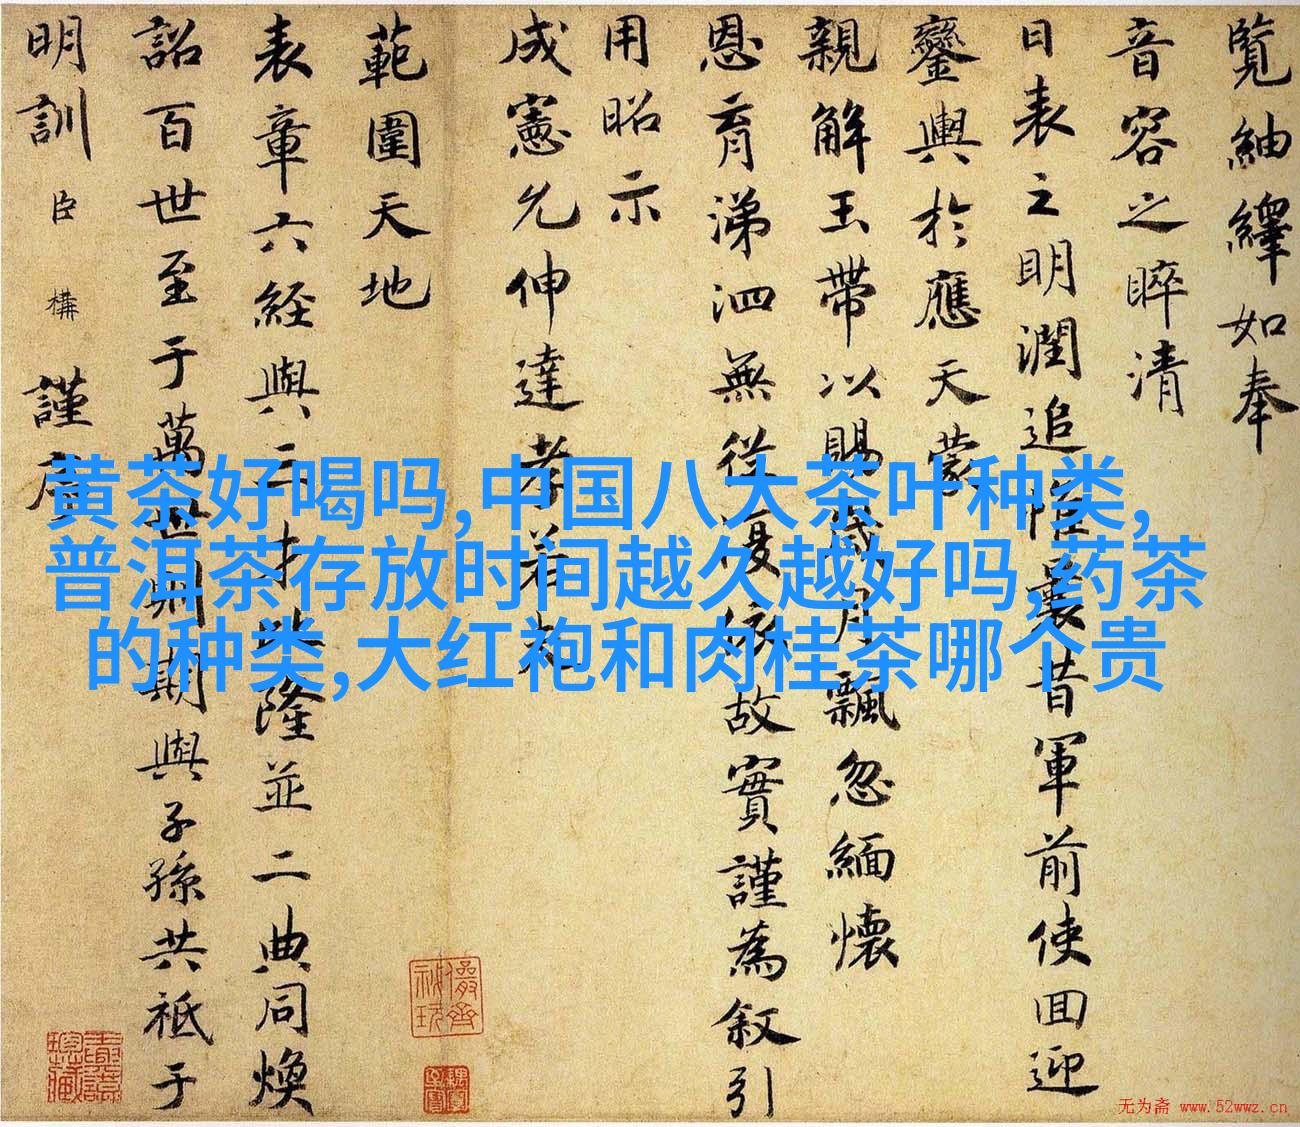 覽紬繹如奉
音容之睟清
日表之明潤追惟曩昔軍前使回迎
鑾輿於應天蒙
親解玉帶以賜歲月飄忽緬懷
恩育涕泗無從復依故實謹為叙引
用昭示
成憲允伸達孝若夫
範圍天地
表章六經與三才此隆並二典同煥
詔百世至于萬世則期與子孫共祗于
明訓臣構謹序
黄茶好喝吗,中国八大茶叶种类,
普洱茶存放时间越久越好吗,药茶
的种类,大红袍和肉桂茶哪个贵
无为斋 www.52wwz.cn